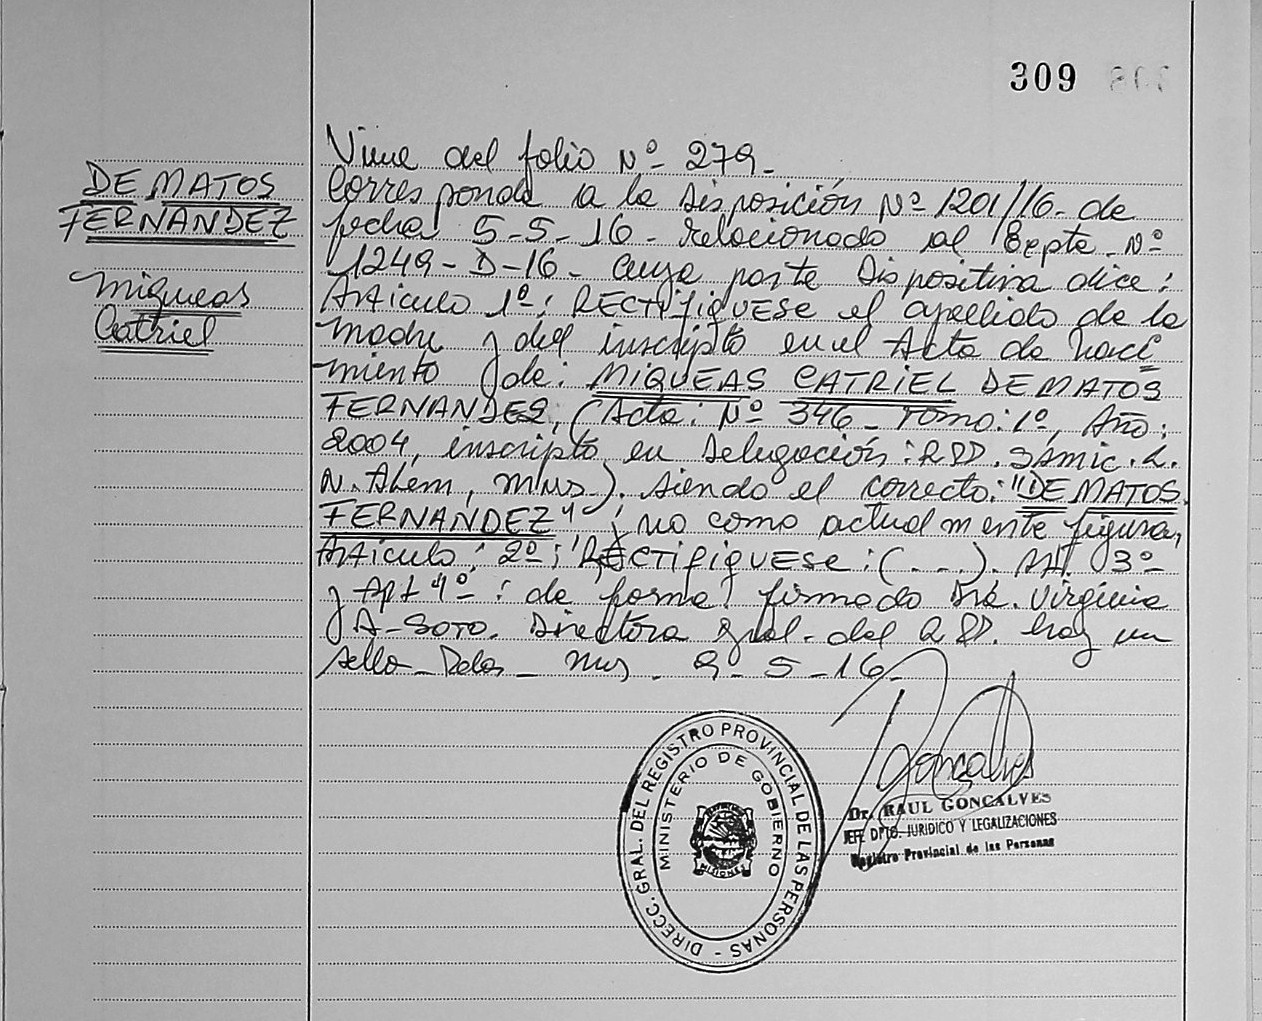 309
DE MATOS
FERNANDEZ
Miqueas
Catriel
Viene del folio Nº 279.
Corresponde a la Disposición Nº 1201/16 de
fecha 5-5-16 - relacionado al Expte. Nº
1249-D-16- cuya parte Dispositiva dice:
Articulo 1º: RECTIFIQUESE el apellido de la
madre y del inscripto en el Acta de naci
miento de: MIQUEAS CATRIEL DE MATOS
FERNANDES, (Acta: Nº 346 - Tomo: 1º, Año:
2004, inscripto en Delegación: RPP. SAMIC. L.
N. Alem, Mnes). siendo el correcto: "DE MATOS
FERNANDEZ" y no como actualmente figura,
Articulo: 2º: RECTIFIQUESE: (...). Art 3º
y Art 4º: de forma! firmado Dra. Virginia
A. SOTO. Directora Gral. del RPP. hay un
sello - Pdas - Mnes. 9-5-16.
Goncalves
Dr. RAUL GONCALVES
JEFE DPTO. JURIDICO Y LEGALIZACIONES
Registro Provincial de las Personas
DIRECC. GRAL. DEL REGISTRO PROVINCIAL DE LAS PERSONAS -
MINISTERIO DE GOBIERNO
MISIONES